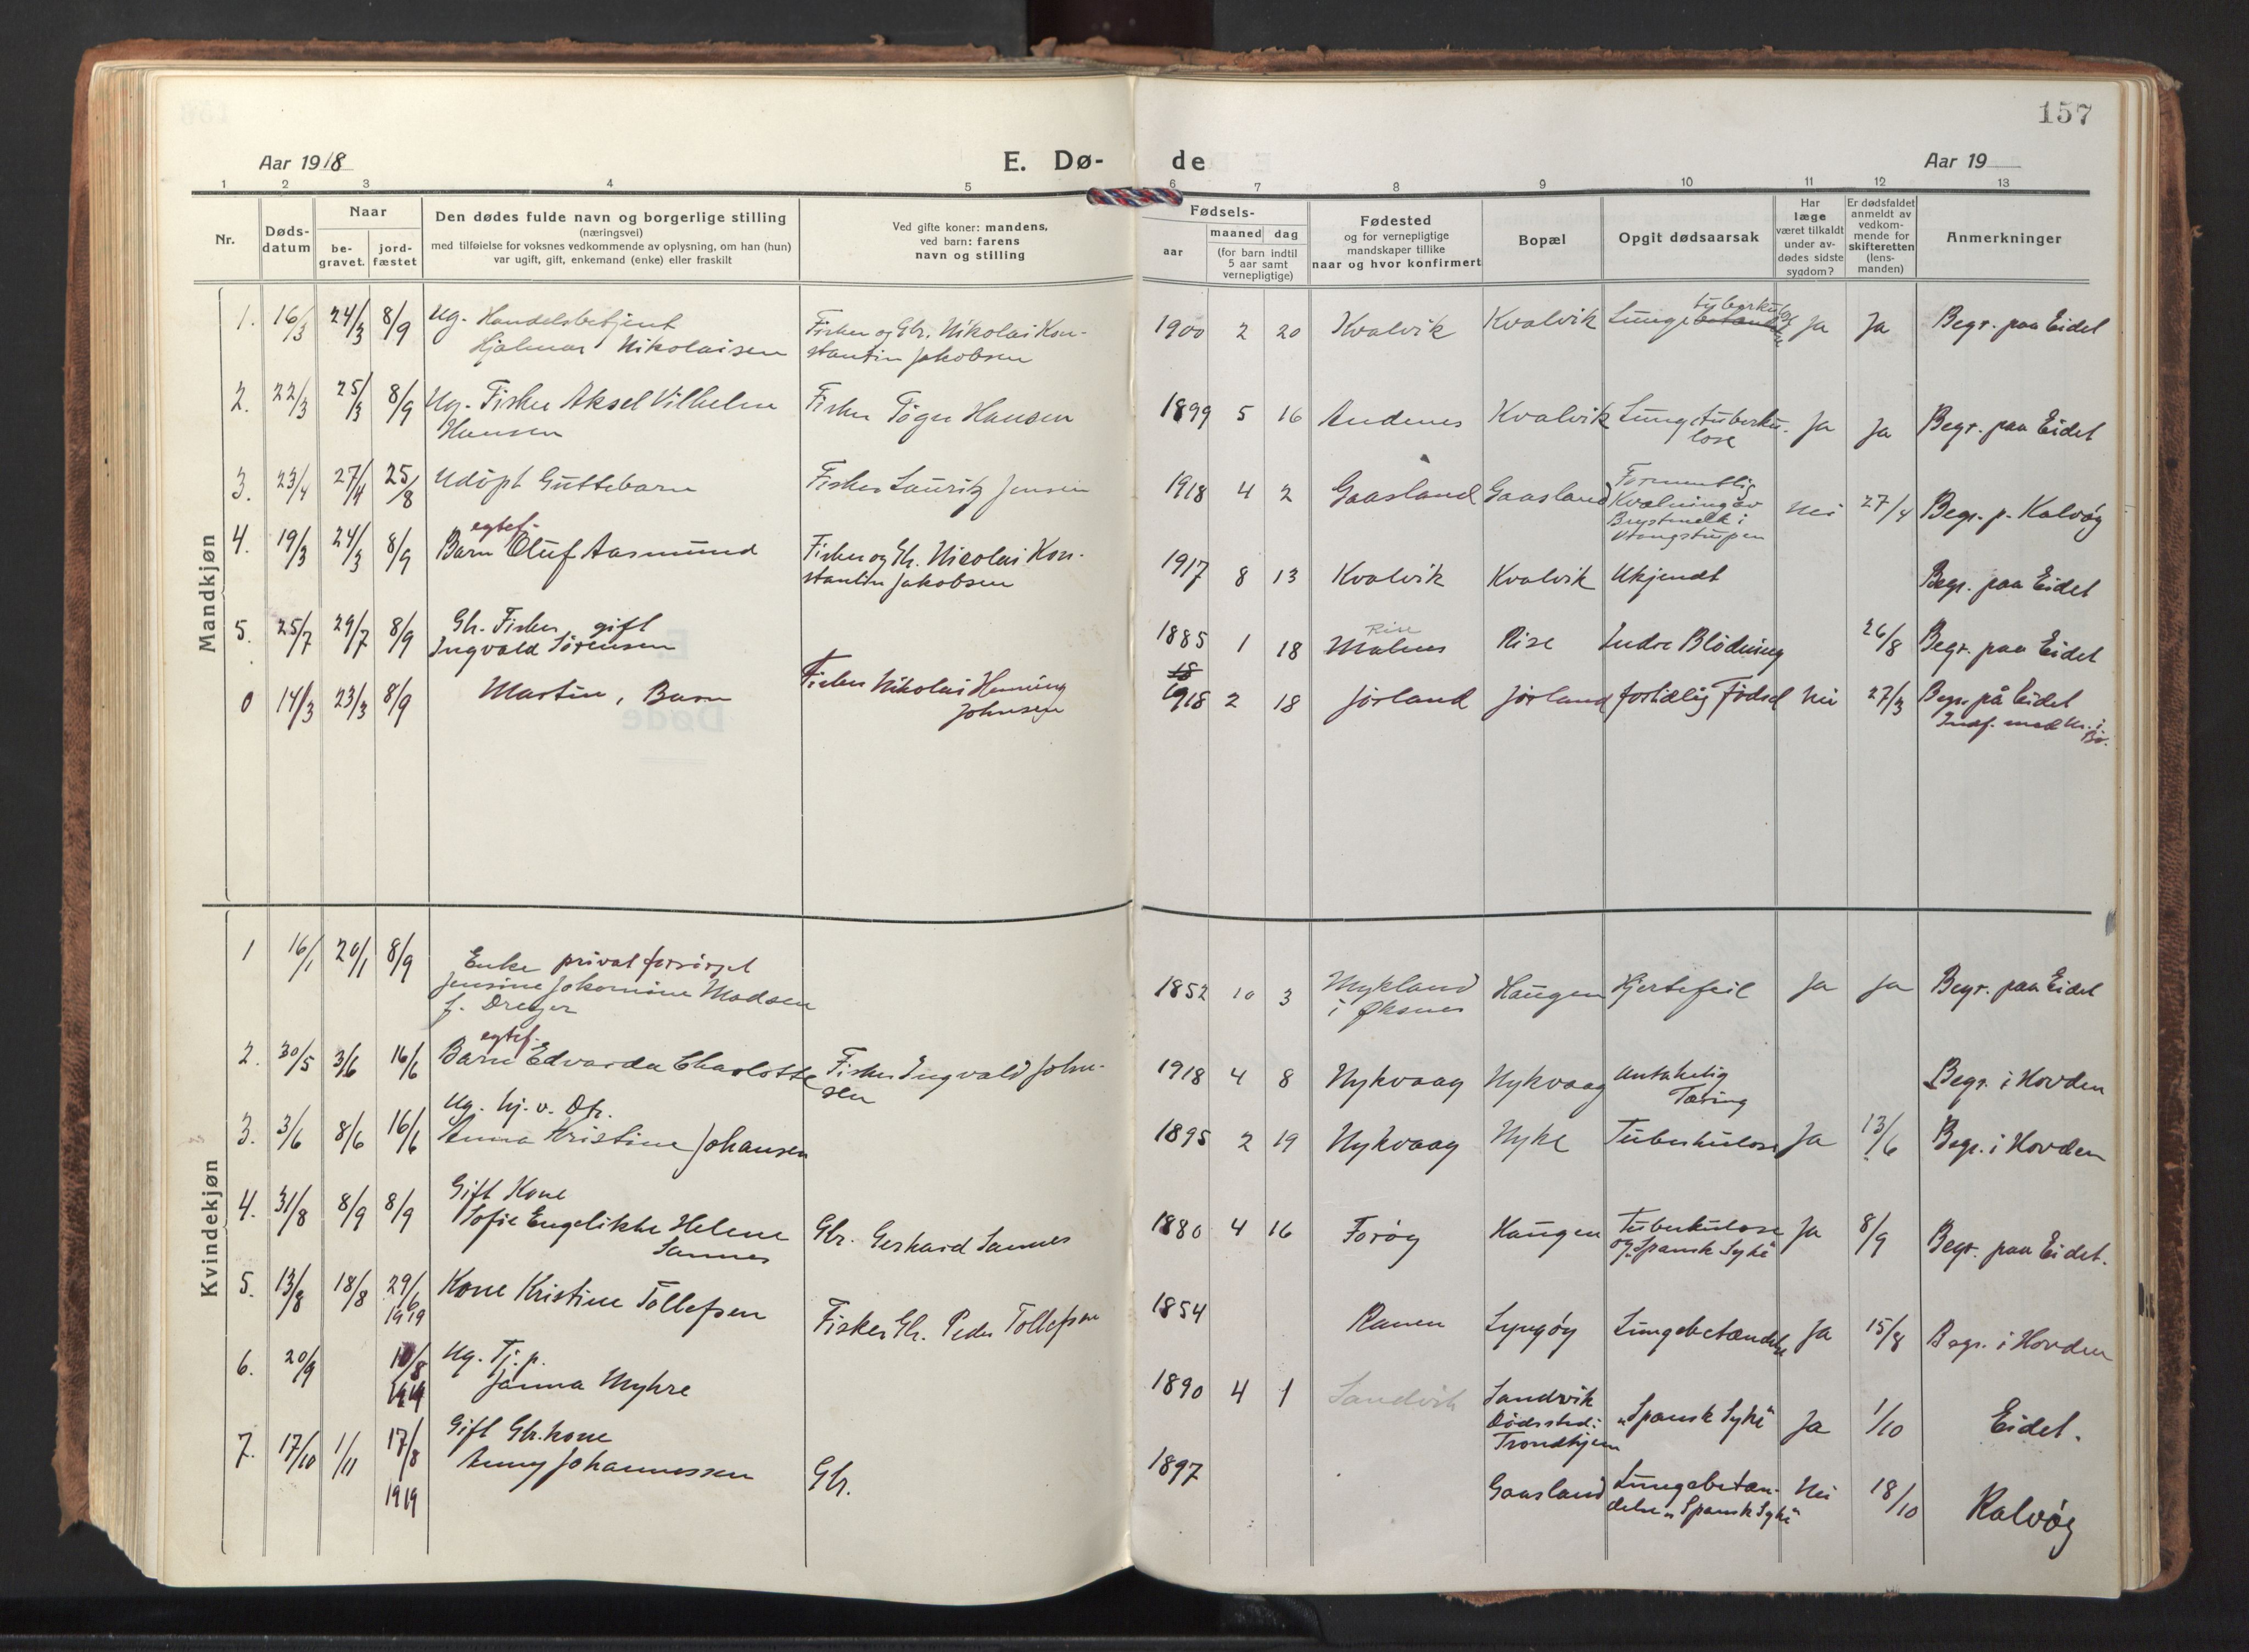 157
Aar 1918
E. Dø-
de
Aar 19
1 2 3 4 5 6 7 8 9 10 11 12 13
Nr.
Døds-
datum
Naar
be-
gravet.
jord-
fæstet
Den dødes fulde navn og borgerlige stilling
(næringsvei)
med tilføielse for voksnes vedkommende av oplysning, om han (hun)
var ugift, gift, enkemand (enke) eller fraskilt
Ved gifte koner: mandens,
ved barn: farens
navn og stilling
Fødsels-
aar
maaned dag
(for barn indtil
5 aar samt
vernepligtige)
Fødested
og for vernepligtige
mandskaper tillike
naar og hvor konfirmert
Bopæl
Opgit dødsaarsak
Har
læge
været tilkaldt
under av-
dødes sidste
sygdom?
Er dødsfaldet
anmeldt av
vedkom-
mende for
skifteretten
(lens-
manden)
Anmerkninger
Mandkjøn
1. 16/3 24/3 8/9 Ug. Handelsbetjent
Hjalmar Nikolaisen
Fisker og Gbr. Nikolai Kon-
stantin Jakobsen
1900 2 20 Kvalvik Kvalvik Lungetuberkulose Ja Ja Begr. paa Eidet
2. 22/3 25/3 8/9 Ug. Fisker Aksel Vilhelm
Hansen
Fisker Tøger Hansen
1899 5 16 Andenes Kvalvik Lungetuberku-
lose
Ja Ja Begr. paa Eidet
3. 23/4 27/4 25/8 Udöpt Guttebarn
Fisker Lauritz Jensen
1918 4 2 Gaasland Gaasland Formentlig
Kvælning av
Brystmelk i
Vrangstrupen
Nei 27/4 Begr. p. Kalvøy
4. 19/3 24/3 8/9 egtef.
Barn Oluf Aasmund
Fisker og Gbr. Nicolai Kon-
stantin Jakobsen
1917 8 13 Kvalvik Kvalvik Ukjendt Begr. paa Eidet
5. 25/7 29/7 8/9 Gbr. Fisker gift
Ingvald Sörensen
1885 1 18 Rise
Malnes
Rise Indre Blödning 26/8 Begr. paa Eidet
0 14/3 23/3 8/9 Martin, Barn
Fisker Nikolai Henning
Johnsen
18
1918 2 18 Jörland Jörland fortidlig Födsel Nei 27/3 Begr. på Eidet
Indf. med Nr. i
Bø.
Kvindekjøn
1 16/1 20/1 8/9 Enke privat forsörget
Jensine Jakomine Madsen
f. Dreyer
1852 10 3 Mykland
i Øksnes
Haugen Hjertefeil Ja Ja Begr. paa Eidet
2. 30/5 3/6 16/6 egtef.
Barn Edvarda Charlotte
Fisker Ingvald John-
sen
1918 4 8 Nykvaag Nykvaag antakelig
Tæring
Begr. i Hovden
3. 3/6 8/6 16/6 Ug. hj. v. Dtr.
Anna Kristine Johansen
1895 2 19 Nykvaag Nyke Tuberkulose Ja 13/6 Begr. i Hovden
4. 31/8 8/9 8/9 Gift Kone
Sofie Engelikke Helene
Sannes
Gbr. Gerhard Sannes
1880 4 16 Forøy Haugen Tuberkulose
og „Spansk Syke“
Ja 8/9 Begr. paa Eidet.
5. 13/8 18/8 29/6
1919
Kone Kristine Tollefsen
Fisker Gbr. Peder Tollefsen
1854 Ranen Lyngøy Lungebetændelse Ja 15/8 Begr. i Hovden
6. 20/9 10/8
1919
Ug. Tj. p.
Janna Myhre
1890 4 1 Sandvik Sandvik
Dødssted:
Trondhjem
„Spansk Syke“ Ja 1/10 Eidet.
7. 17/10 1/11 17/8
1919
Gift Gbr.kone
Anny Johannessen
Gbr.
1897 Gaasland Lungebetæn-
delse „Spansk Syke“
Nei 18/10 Kalvøy